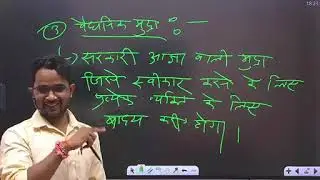 ③ वैधानिक मुद्रा :—
सरकारी आज्ञा वाली मुद्रा
जिसे स्वीकार करने के लिए
प्रत्येक व्यक्ति के लिए
बाध्य होगा।